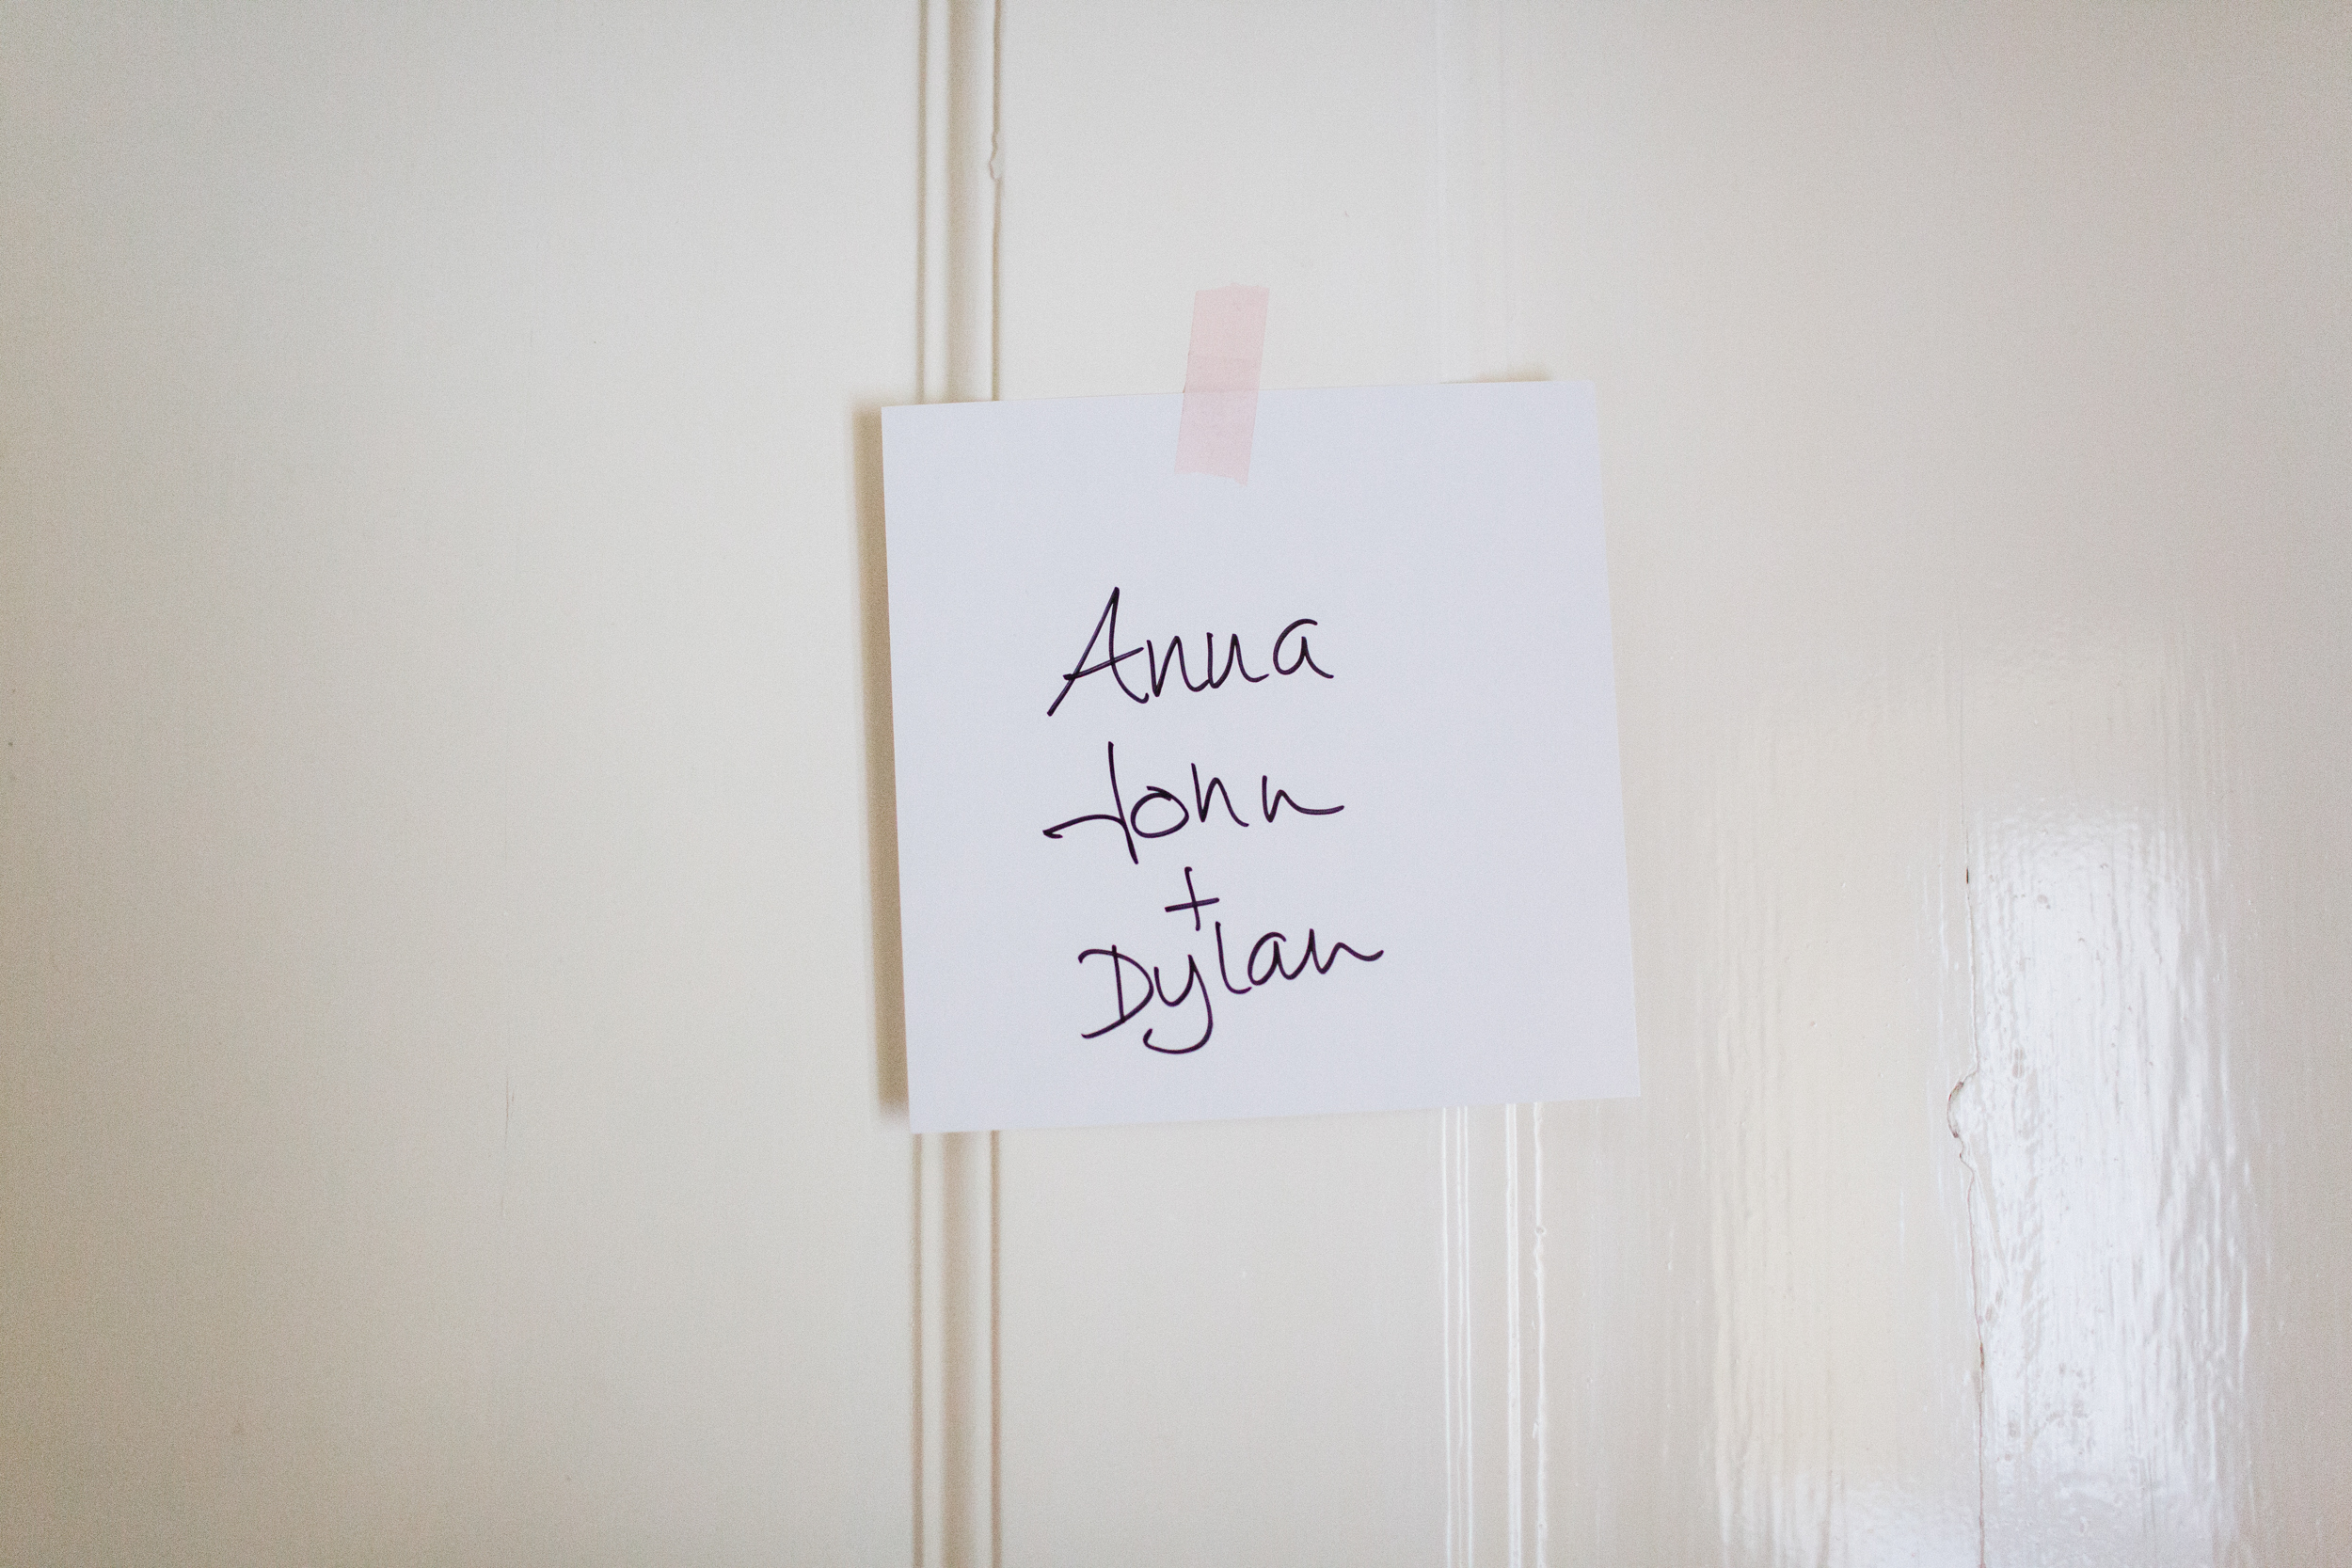 Anna
John
+
Dylan